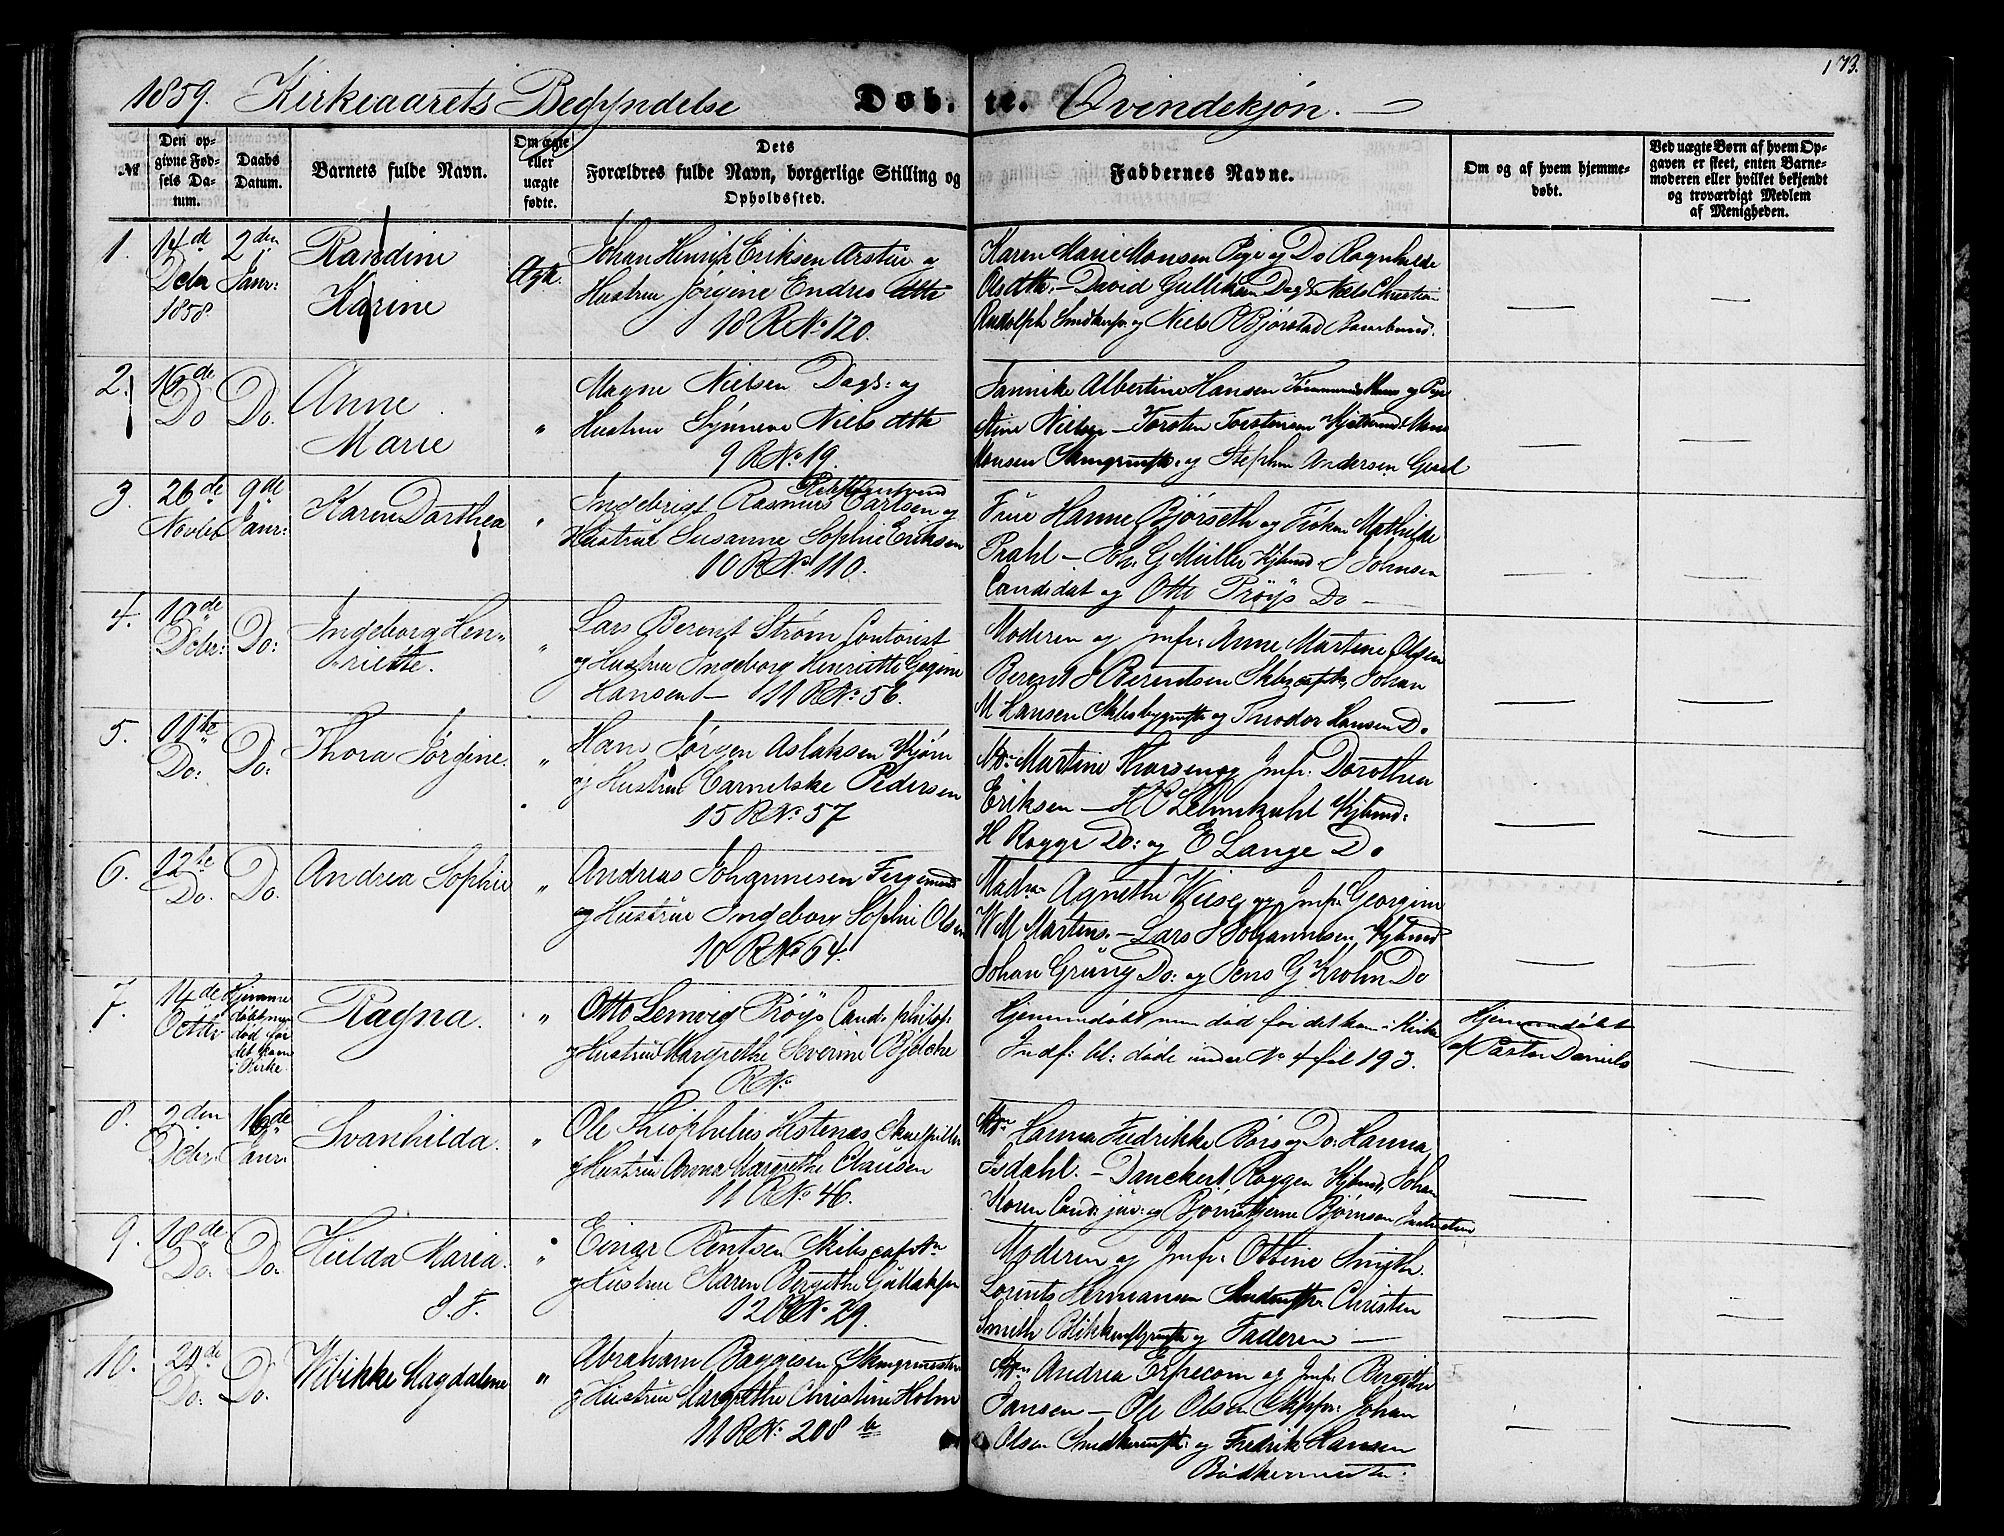 173.
1859. Kirkeaarets Begyndelse Døb-te. Qvindekjøn.
№
Den op-
givne Fød-
sels Da-
tum.
Daabs
Datum.
Barnets fulde Navn.
Om ægte
eller
uægte
fødte.
Dets
Forældres fulde Navn, borgerlige Stilling og
Opholdssted.
Faddernes Navne.
Om og af hvem hjemme-
døbt.
Ved uægte Børn af hvem Op-
gaven er skeet, enten Barne-
moderen eller hvilket bekjendt
og troværdigt Medlem
af Menigheden.
1. 14de
Decbr
1858
2den
Janr:
Randine
Karine
Ægte.
Johan Henrik Eriksen Arstue og
Hustrue Jørgine Endres dttr
18 R No 120.
Karen Marie Monsen Pige og Do Ragnhilde
Olsdttr. - David Gulliksen Dags Niels Christian
Rudolph Smedkerfsv og Niels R Bjørstad
2. 16de
Do
Do.
Anne
Marie
"
Magne Nielsen Dags: og
Hustrue Synneve Niels dttr
9 R No 19.
Jannike Albertine Hansen og Pige
Stine Nielsen - Torsten Torstensen Mons
Monsen og Stephen Andersen
3. 26de
Novbr
9de
Janr:
Karen Dorthea
"
Ingebrigt Rasmus Carlsen og
Hustrue Susanne Sophie Eriksen
10 R No 110.
Frue Hanne Bjørseth og Frøken Mathilde
Prahl - G Müller Kjbmd J Johnsen
Candidat og Otto Prøys Do -
4. 10de
Decbr:
Do:
Ingeborg Hen-
riette.
"
Lars Berent Strøm Contorist
og Hustrue Ingeborg Henriette Gegine
Hansen - 11 R No 56.
Moderen og Jmfr: Anne Martine Olsen
Berent H Berendsen Skbscapt, Johan
M Hansen Skibsbygmstr og Theodor Hansen Do
5. 11te
Do:
Do:
Thora Jørgine.
"
Hans Jørgen Aslaksen
og Hustrue Carnelske Pedersen
15 R No 57
Martine Thorsen og Jmfr. Dorothea
Eriksen - H C Lehmkuhl Kjbmd:
H Rogge Do: og E Lange Do
6. 12te
Do.
Do.
Andrea Sophie
"
Andreas Johannesen Fergemand
og Hustrue Ingeborg Sophie Olsen
10 R No 64.
Madm Agnethe Wiese og Jmfr. Georgine
W M Martens. - Lars J Johannesen, Kjbmd
Johan Grüng Do: og Jens G Krohn Do
7. 14de
Octbr
Hjemme
døbt men
død før
det kom
i Kirke
Ragna.
"
Otto Lemvig Prøys Cand: philos:
og Hustrue Margrethe Severine Bjelche
R No
Hjemmedøbt men død før det kom i Kirke
Indf: bl: døde under No 4 fol 193.
Hjemmedøbt
af Pastor Daniels
8. 2den
Decbr.
16de
Janr:
Svanhilda.
"
Ole Theophilus Hestenæs Skuespiller
og Hustrue Anna Margrethe Clausen
11 R No 46.
Hanna Fredrikke Børs og Do: Hanna
Isdahl. - Danckert Roggen Kjbmd, Johan
Koren Cand: jur: og Bjørnstjerne Bjørnson Instructeur
9. 18de
Do.
Do.
Hilda Maria.
"
Einar Rentsen Skibscaptn
og Hustrue Karen Bergithe Gullaksen
12 R No 29.
Moderen og Jmfr: Ottine Smith.
Lorents Hermansen Christen
Smith Blikkenslgrmstr og Faderen -
10. 24de
Do:
Do.
Wibikke Magdalene
"
Abraham Baggesen Skomgrmester
og Hustrue Margrethe Christine Holm
11 R No 208 b
Andrea Erfrecom og Jmfr. Birgithe
Jansen - Ole Olsen Skpper: Johan
Olsen og Fredrik Hansen
Bødkermester.